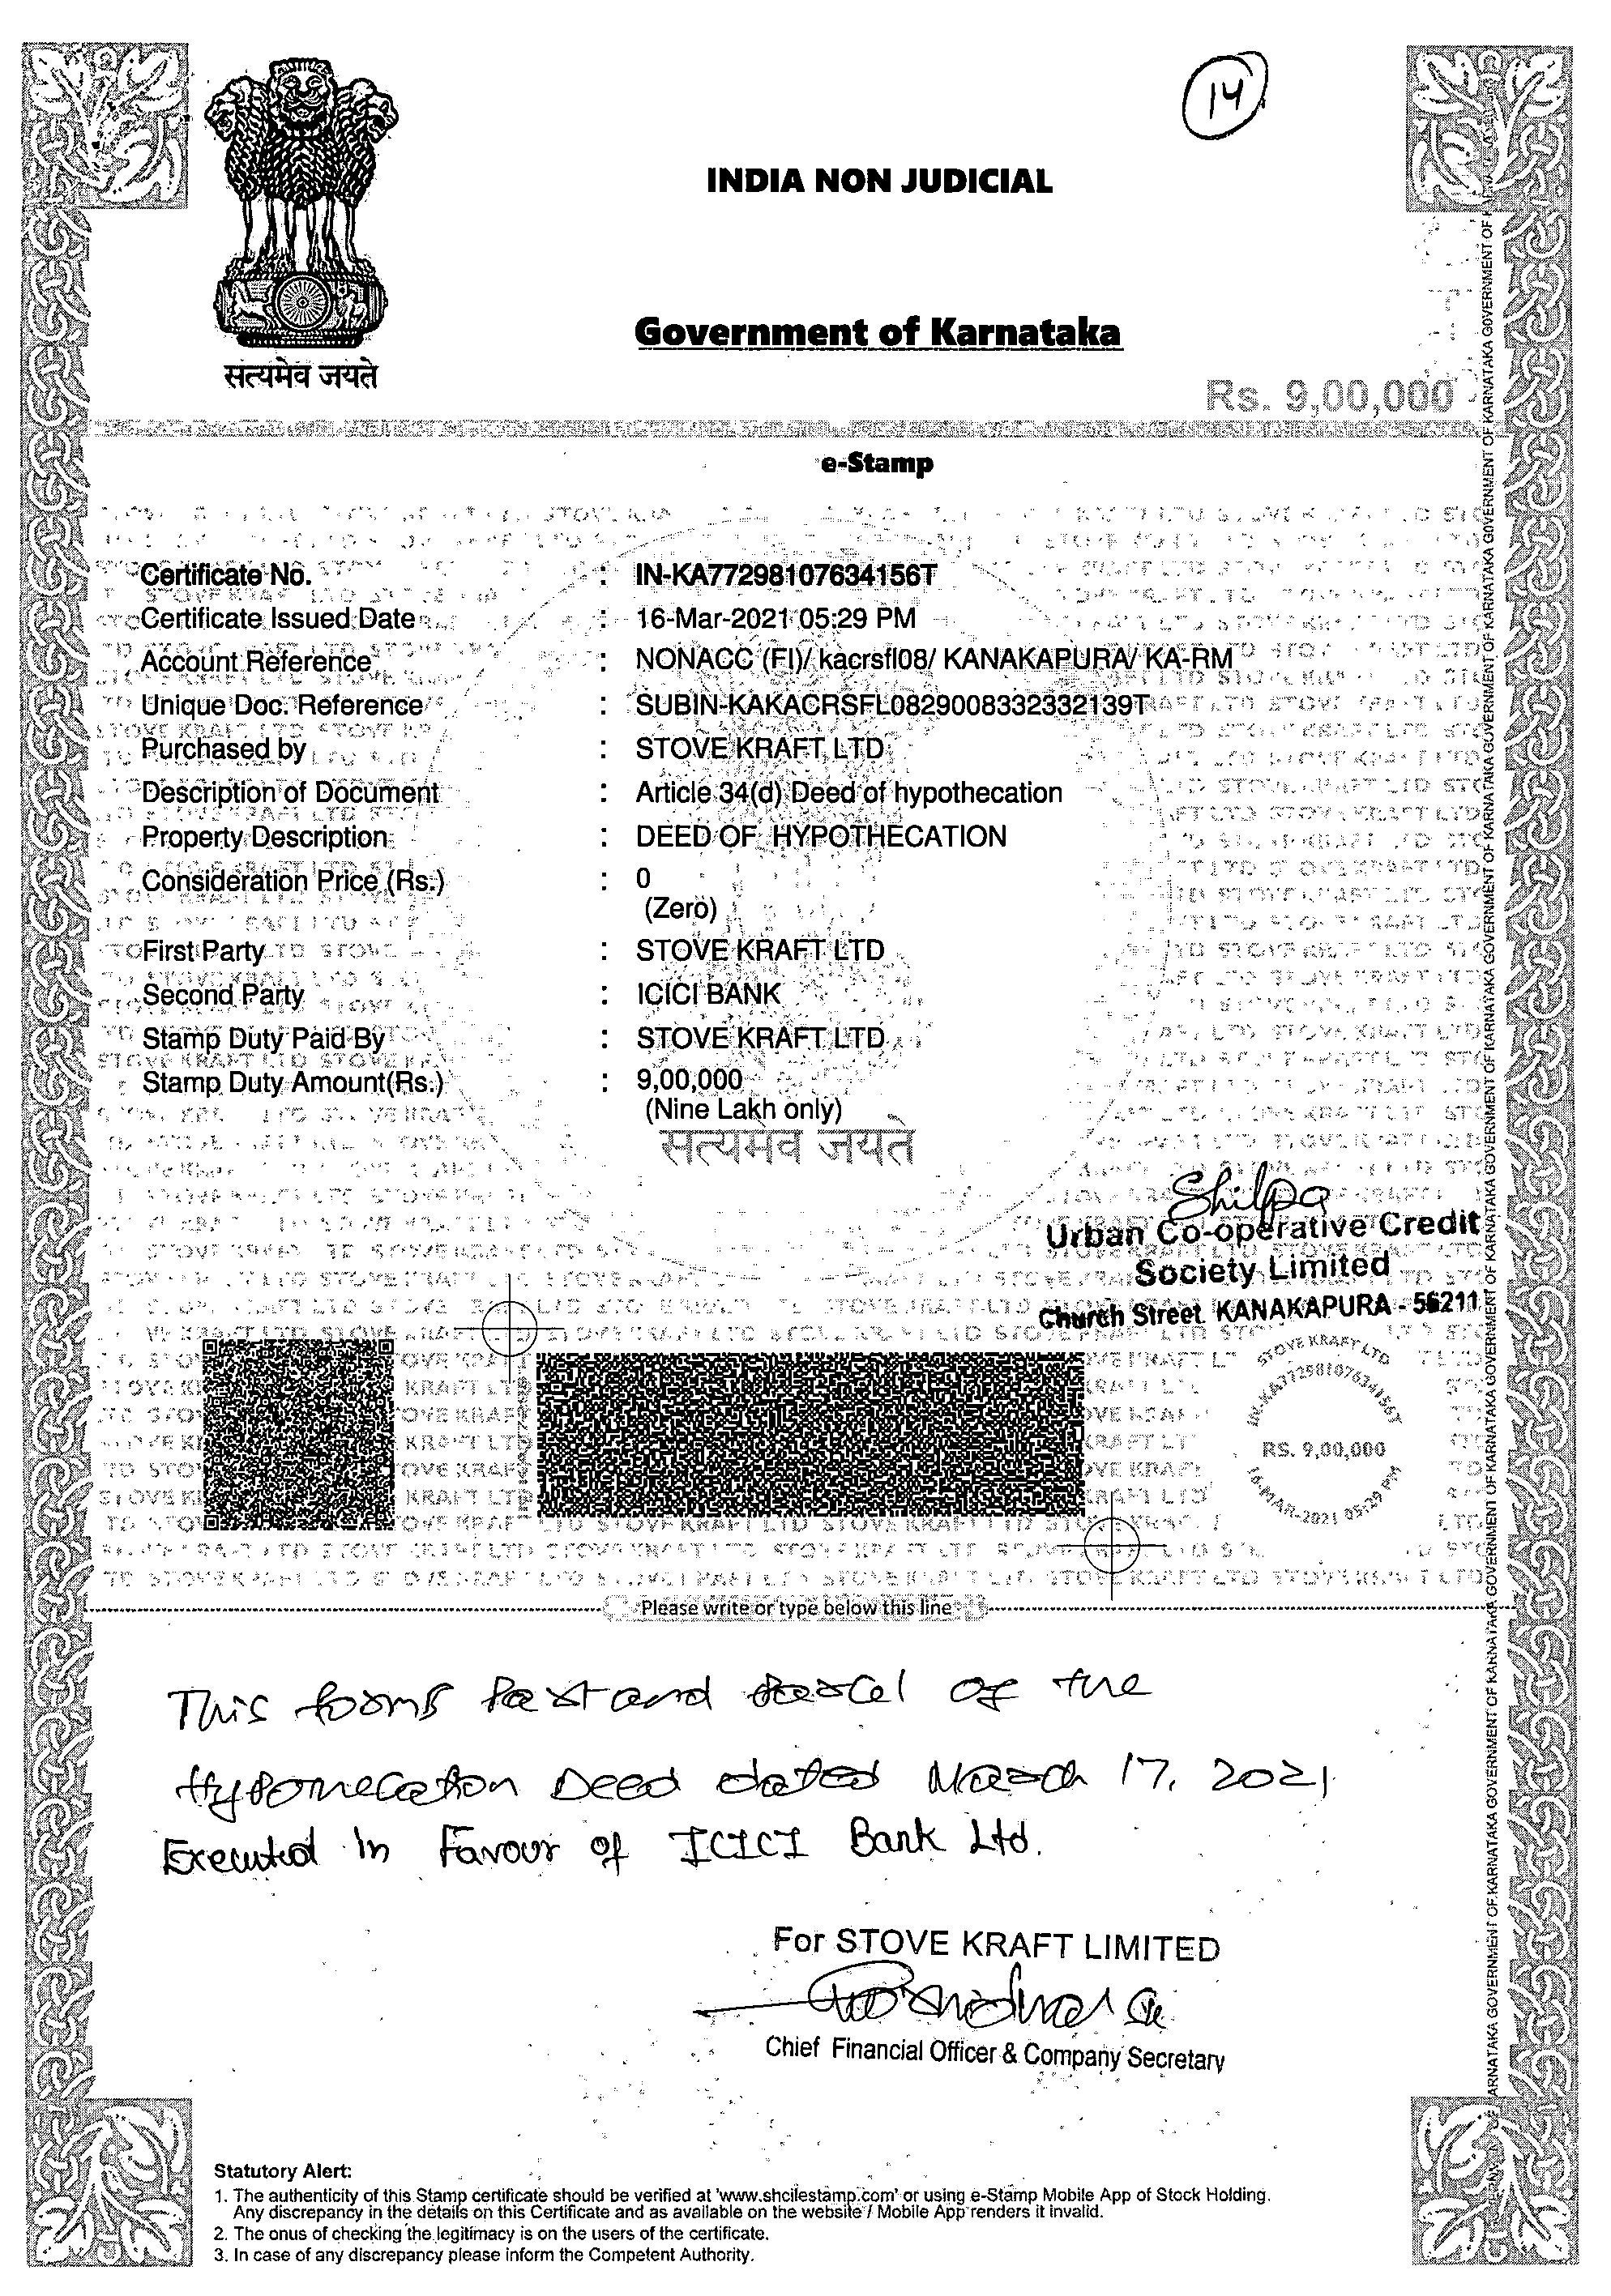 14
INDIA NON JUDICIAL
Government of Karnataka
सत्यमेव जयते
Rs. 9,00,000
e-Stamp
Certificate No. : IN-KA77298107634156T
Certificate Issued Date : 16-Mar-2021 05:29 PM
Account Reference : NONACC (FI)/ kacrsfl08/ KANAKAPURA/ KA-RM
Unique Doc. Reference : SUBIN-KAKACRSFL0829008332332139T
Purchased by : STOVE KRAFT LTD
Description of Document : Article 34(d) Deed of hypothecation
Property Description : DEED OF HYPOTHECATION
Consideration Price (Rs.) : 0
(Zero)
First Party : STOVE KRAFT LTD
Second Party : ICICI BANK
Stamp Duty Paid By : STOVE KRAFT LTD
Stamp Duty Amount(Rs.) : 9,00,000
(Nine Lakh only)
सत्यमेव जयते
Shilpa
Urban Co-operative Credit
Society Limited
Church Street KANAKAPURA - 56211
STOVE KRAFT LTD
IN-KA77298107634156T
RS. 9,00,000
16-MAR-2021 05:29 PM
Please write or type below this line
This forms part and parcel of the
Hypothecation Deed dated March 17, 2021
Executed in Favour of ICICI Bank Ltd.
For STOVE KRAFT LIMITED
Chief Financial Officer & Company Secretary
Statutory Alert:
1. The authenticity of this Stamp certificate should be verified at 'www.shcilestamp.com' or using e-Stamp Mobile App of Stock Holding.
Any discrepancy in the details on this Certificate and as available on the website / Mobile App renders it invalid.
2. The onus of checking the legitimacy is on the users of the certificate.
3. In case of any discrepancy please inform the Competent Authority.